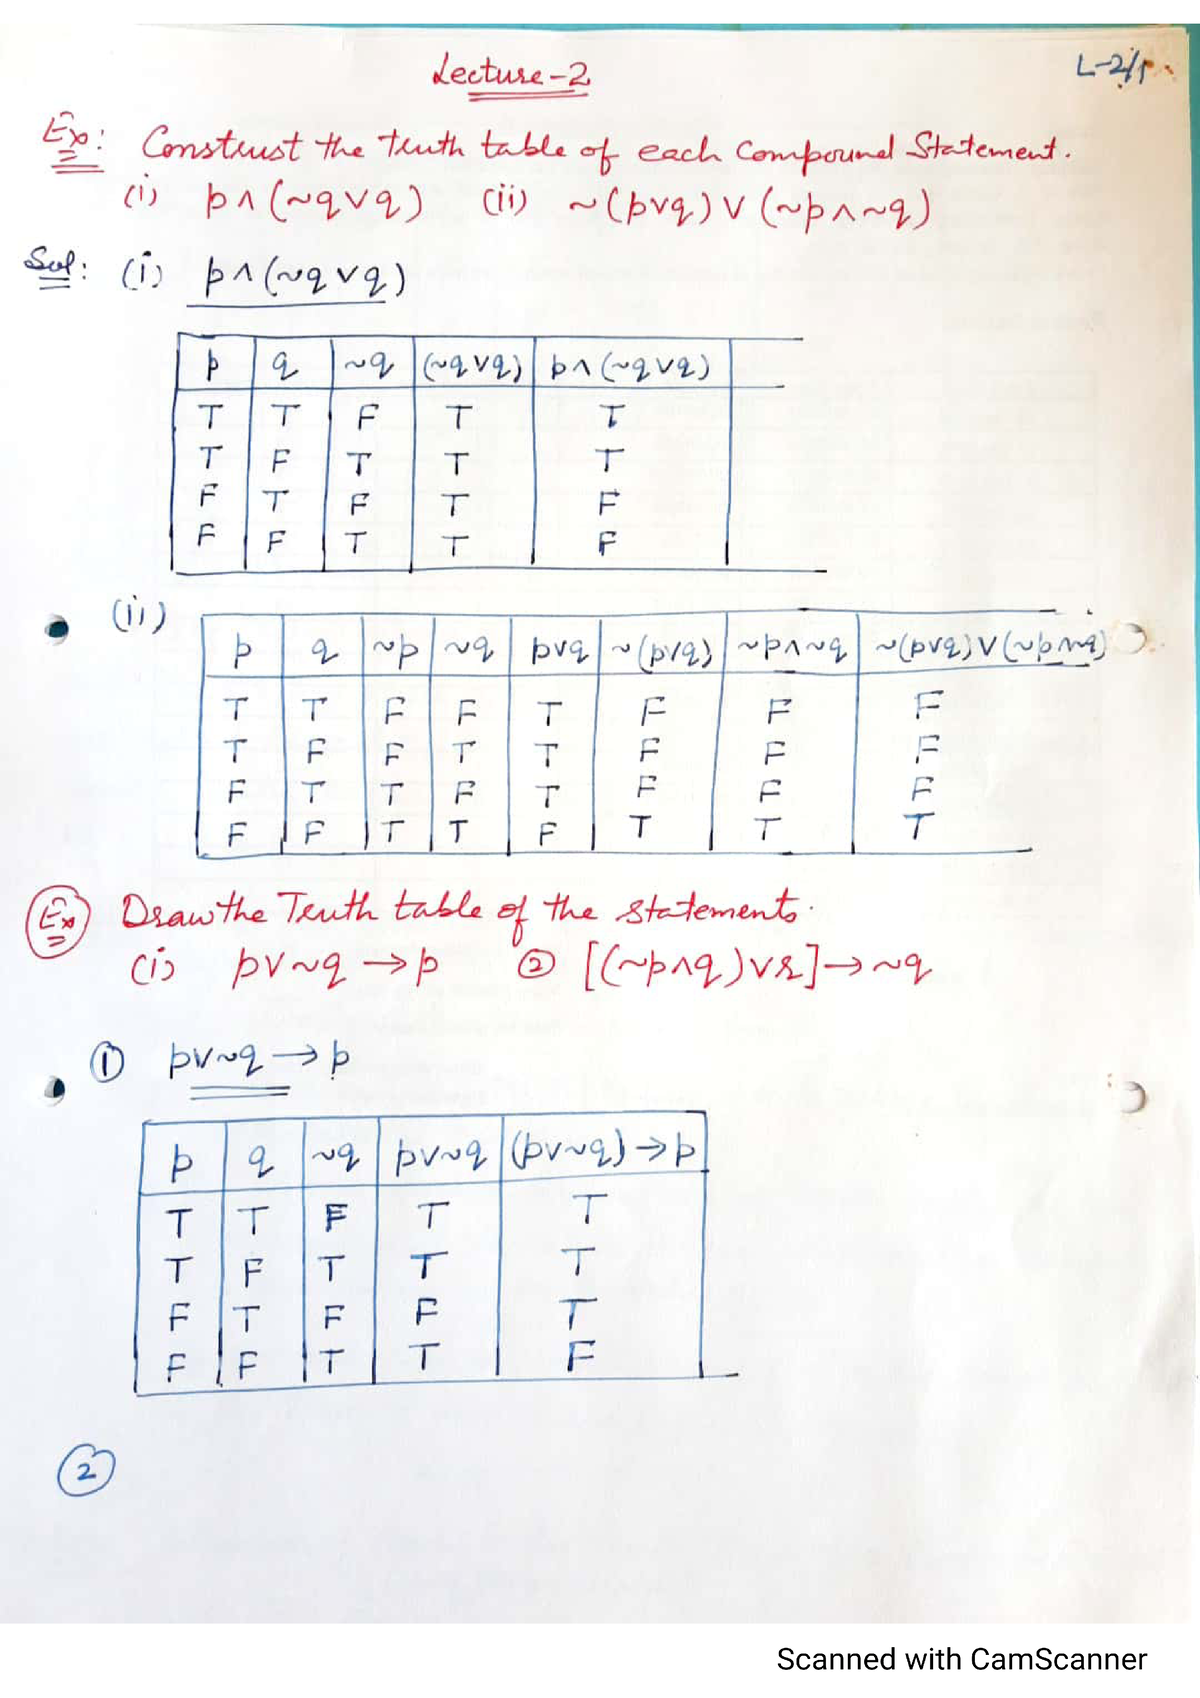 Lecture-2
L-2/1
Ex: Construst the truth table of each Compound Statement.
(i) p∧(~q∨q) (ii) ~(p∨q)∨(~p∧~q)
Sol: (i) p∧(~q∨q)
p q ~q (~q∨q) p∧(~q∨q)
T T F T T
T F T T T
F T F T F
F F T T F
(ii)
p q ~p ~q p∨q ~(p∨q) ~p∧~q ~(p∨q)∨(~p∧~q)
T T F F T F F F
T F F T T F F F
F T T F T F F F
F F T T F T T T
Ex Draw the Truth table of the statements.
(i) p∨~q→p ② [(~p∧q)∨r]→~q
① p∨~q→p
p q ~q p∨~q (p∨~q)→p
T T F T T
T F T T T
F T F F T
F F T T F
②
Scanned with CamScanner